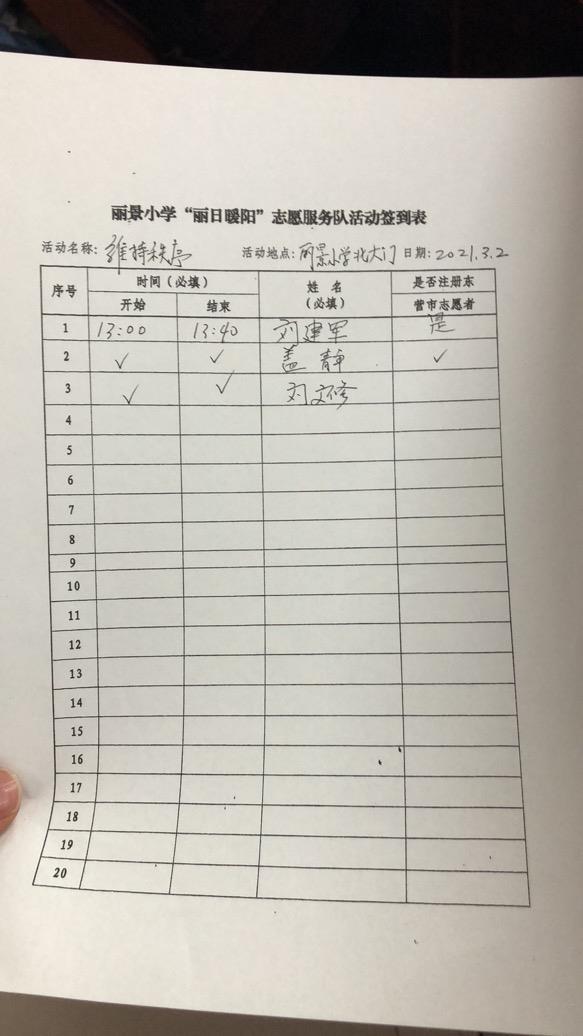 丽景小学“丽日暖阳”志愿服务队活动签到表
活动名称：维持秩序 活动地点：丽景小学北大门 日期：2021.3.2
序号 时间（必填） 姓名（必填） 是否注册东营市志愿者
开始 结束
1 13:00 13:40 刘建军 是
2 ✓ ✓ 盖静 ✓
3 ✓ ✓ 刘文修
4
5
6
7
8
9
10
11
12
13
14
15
16
17
18
19
20